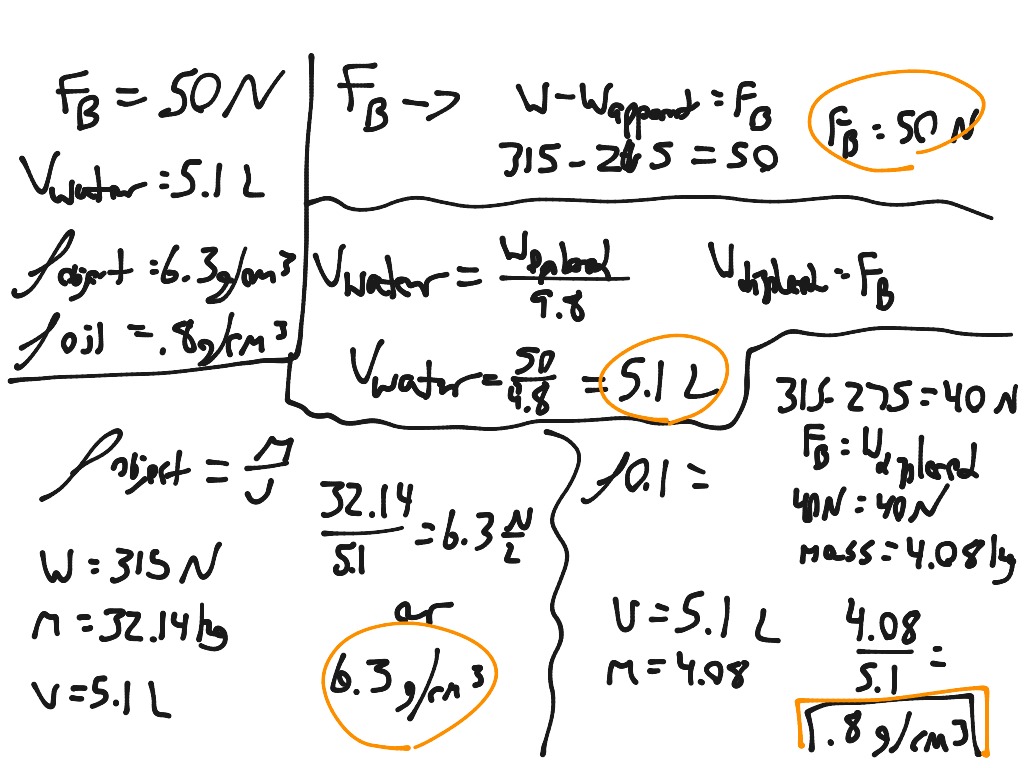 F_B = 50 N
V_water = 5.1 L
ρ_object = 6.3 g/cm³
ρ_oil = .8 g/cm³
F_B →
W - W_apparent = F_B
315 - 265 = 50
F_B = 50 N
V_water = W_Displaced / 9.8
W_displaced = F_B
V_water = 50 / 9.8 = 5.1 L
ρ_object = m / v
W = 315 N
m = 32.14 kg
V = 5.1 L
32.14 / 5.1 = 6.3 N/L
or
6.3 g/cm³
ρ_oil =
V = 5.1 L
m = 4.08
315 - 275 = 40 N
F_B = W_displaced
40N = 40N
mass = 4.08 kg
4.08 / 5.1 =
.8 g/cm³